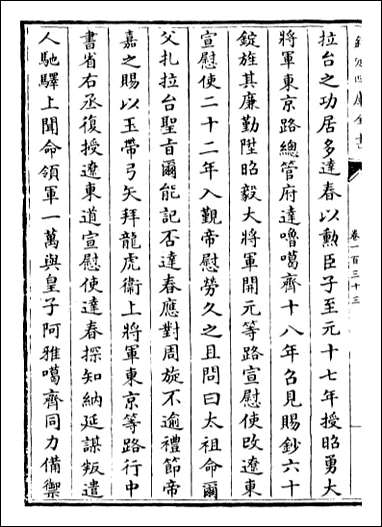 欽定四庫全書
卷一百三十三
拉台之功居多達春以勲臣子至元十七年授昭勇大
將軍東京路總管府達嚕噶齊十八年召見賜鈔六十
錠旌其廉勤陞昭毅大將軍開元等路宣慰使改遼東
宣慰使二十二年入覲帝慰勞久之且問曰太祖命爾
父扎拉台聖㫖爾能記否達春應對周旋不逾禮節帝
嘉之賜以玉帶弓矢拜龍虎衞上將軍東京等路行中
書省右丞復授遼東道宣慰使達春探知納延謀叛遣
人馳驛上聞命領軍一萬與皇子阿雅噶齊同力備禦